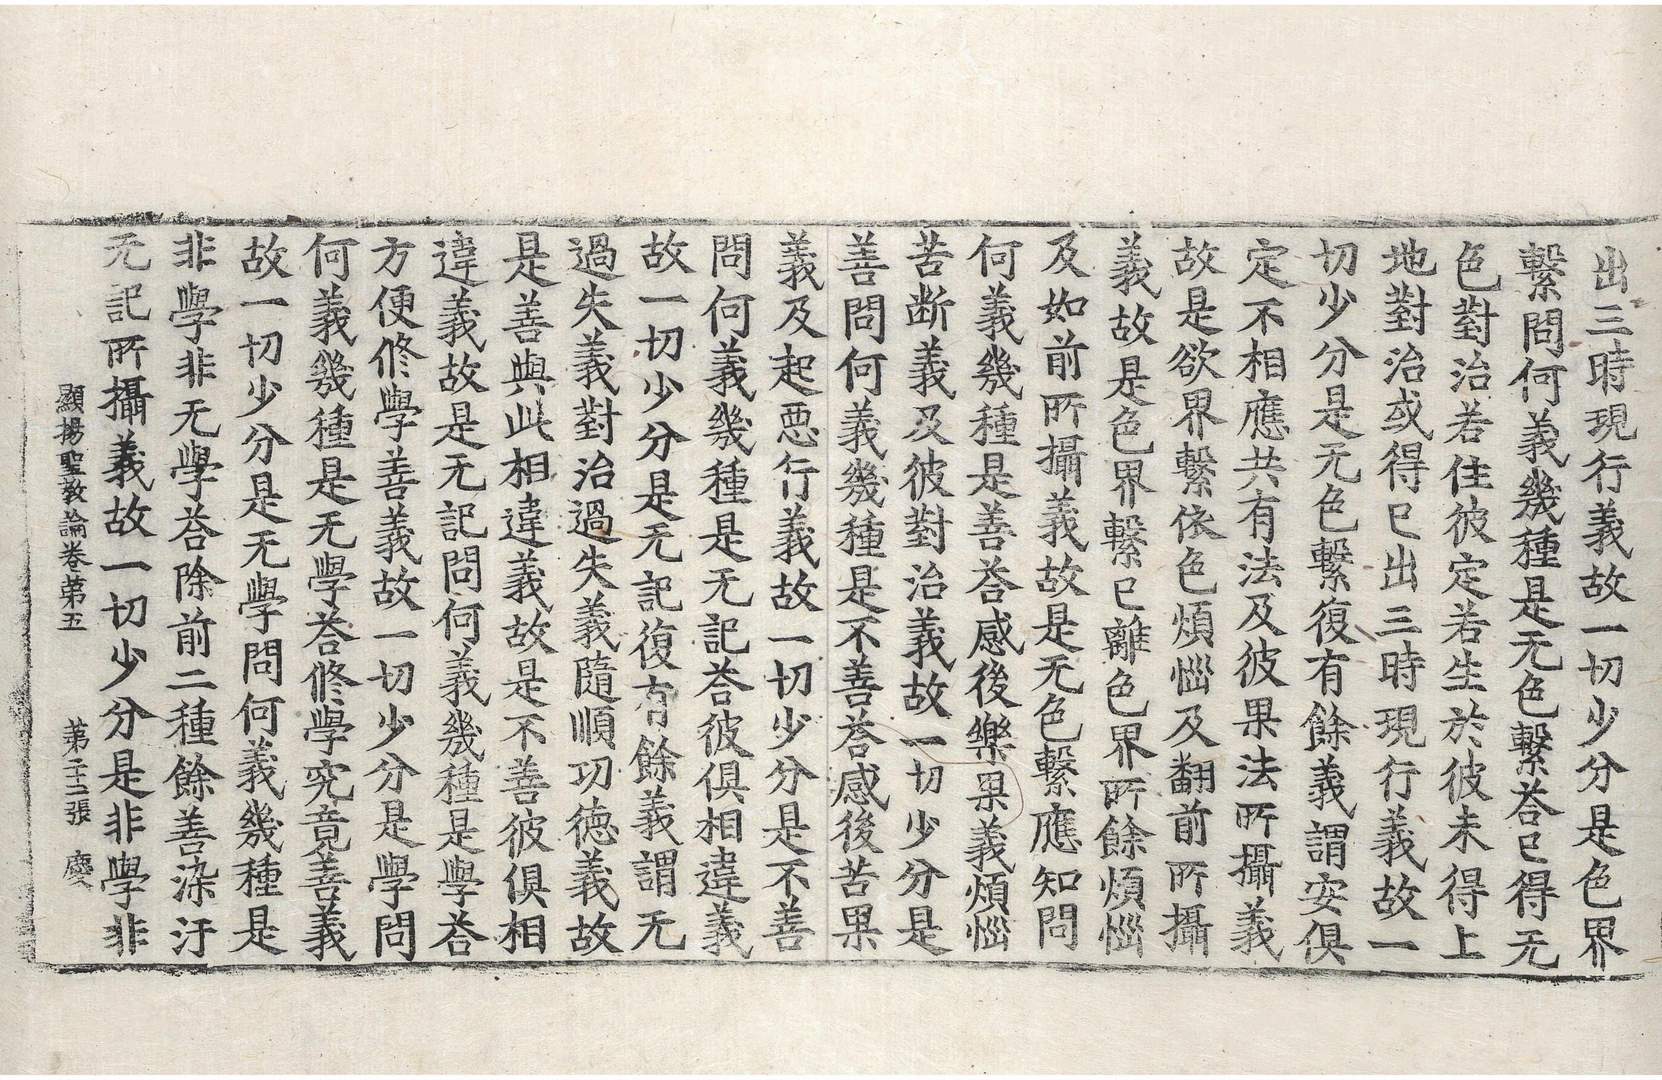 出三時現行義故一切少分是色界
繫問何義幾種是无色繫荅已得无
色對治若住彼定若生於彼未得上
地對治或得已出三時現行義故一
切少分是无色繫復有餘義謂安俱
定不相應共有法及彼果法所攝義
故是欲界繫依色煩惱及翻前所攝
義故是色界繫已離色界所餘煩惱
及如前所攝義故是无色繫應知問
何義幾種是善荅感後樂果義煩惱
苦断義及彼對治義故一切少分是
善問何義幾種是不善荅感後苦果
義及起惡行義故一切少分是不善
問何義幾種是无記荅彼俱相違義
故一切少分是无記復有餘義謂无
過失義對治過失義隨順功德義故
是善與此相違義故是不善彼俱相
違義故是无記問何義幾種是學荅
方便修學善義故一切少分是學問
何義幾種是无學荅修學究竟善義
故一切少分是无學問何義幾種是
非學非无學荅除前二種餘善染汙
无記所攝義故一切少分是非學非
顯揚聖教論卷第五 第二十三張 慶